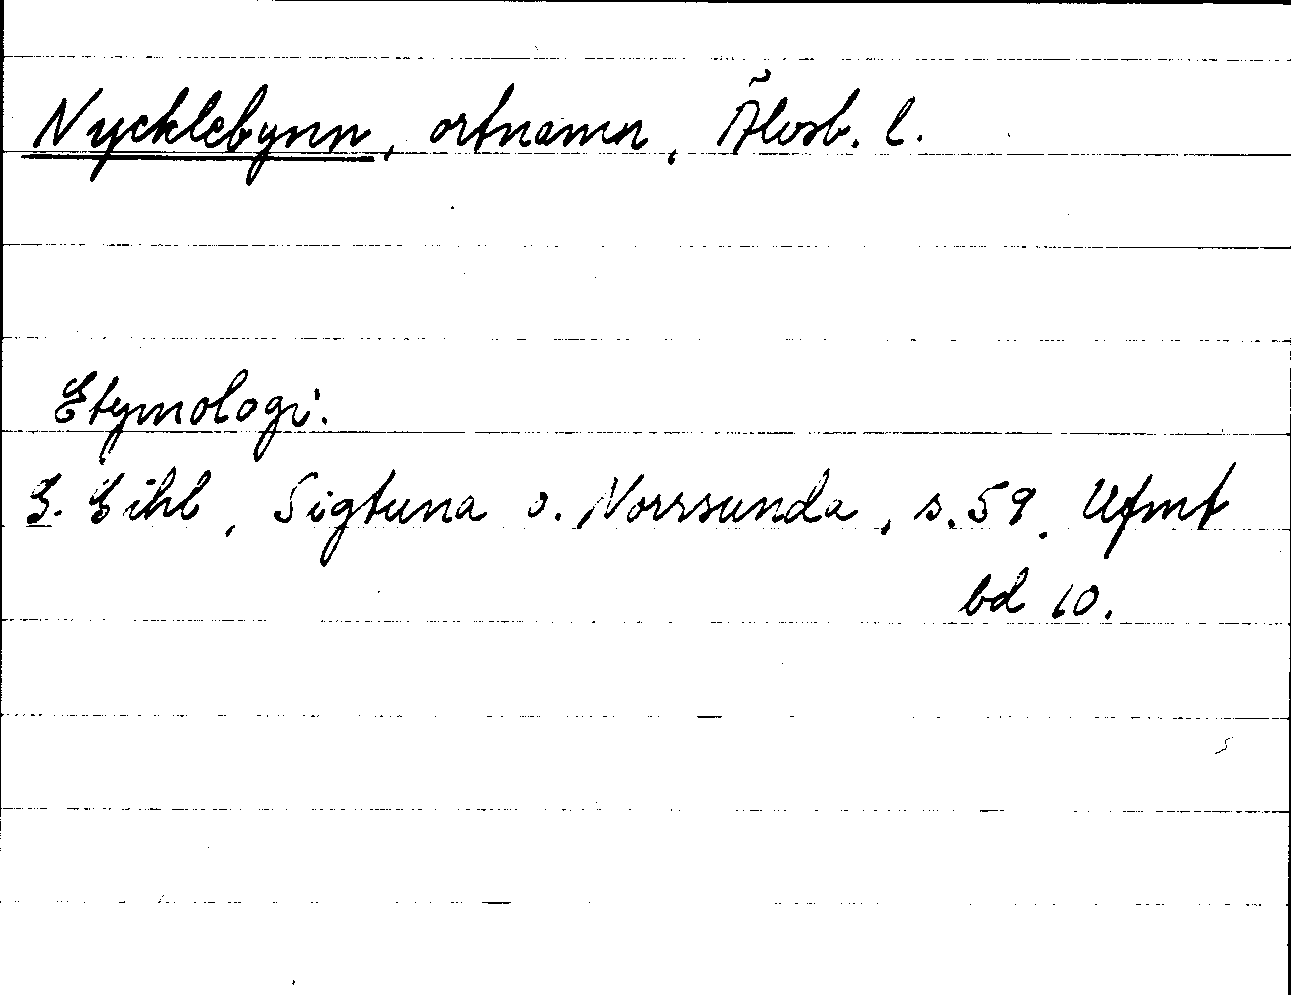 Nycklebynn, ortnamn, Älvsb. l.
Etymologi.
G. Gihl, Sigtuna o. Norrsunda, s. 59. Ufmt
bd 10.